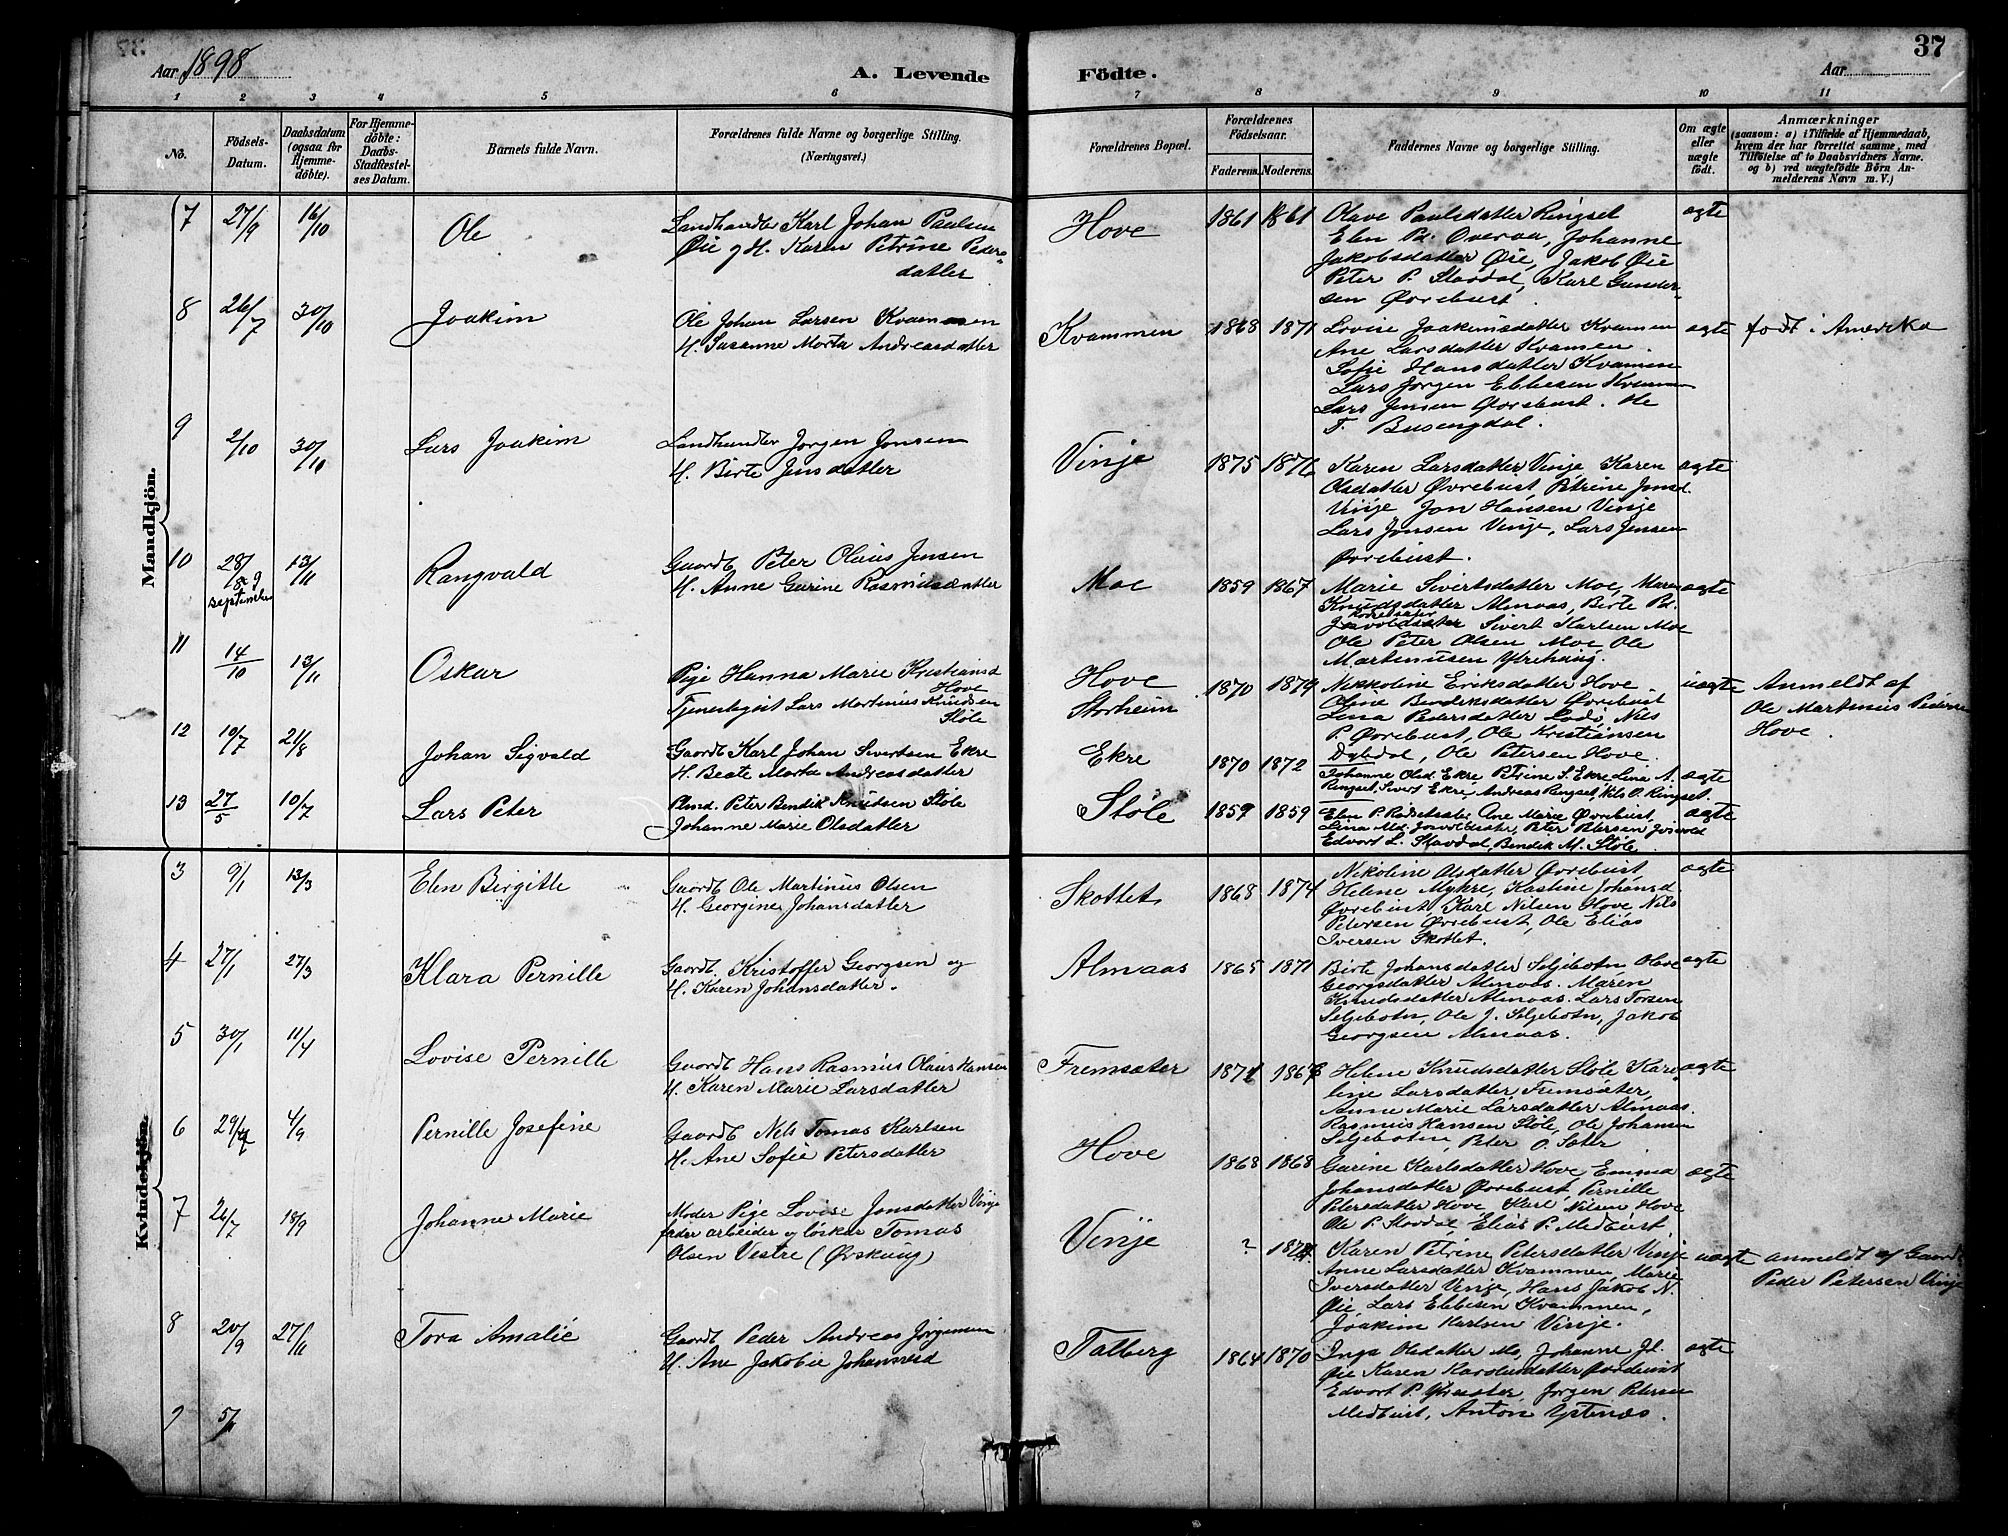 Aar 1898
A. Levende
Födte.
Aar
37
1 2 3 4 5 6 7 8 9 10 11
No.
Födsels-
Datum.
Daabsdatum
(ogsaa for
Hjemme-
döbte).
For Hjemme-
döbte:
Daabs-
Stadfæstel-
ses Datum.
Barnets fulde Navn.
Forældrenes fulde Navne og borgerlige Stilling.
(Næringsvei.)
Forældrenes Bopæl.
Forældrenes
Födselsaar.
Faderens. Moderens.
Faddernes Navne og borgerlige Stilling.
Om ægte
eller
uægte
födt.
Anmærkninger
(saasom: a) i Tilfælde af Hjemmedaab,
hvem der har forrettet samme, med
Tilföielse af to Daabsvidners Navne.
og b) ved uægtefödte Börn An-
melderens Navn m. V.)
Mandkjön.
7 27/9 16/10 Ole
Landhandler Karl Johan Paulsen
Øie og H. Karen Petrine Peders-
datter
Hove 1861 1861
Olave Paulsdatter Ringset
Elen Pd. Overaa, Johanne
Jakobsdatter Øie, Jakob Øie
Peter P. Stavdal, Karl Gunder-
sen Øvrebust.
ægte
8 26/7 30/10 Joakim
Ole Johan Larsen Kvammen
H. Susanne Marta Andreasdatter
Kvammen 1868 1871
Lovise Joakimsdatter Kvamen
Ane Larsdatter Kvamen
Sofie Hansdatter Kvamen
Lars Jørgen Ebbesen Kvamen
Lars Jensen Øvrebust. Ole
T. Busengdal.
ægte født i Amerika
9 2/10 30/10 Lars Joakim
Landhandler Jørgen Jonsen
H. Birte Jensdatter
Vinje 1875 1876
Karen Larsdatter Vinje Karen
Olsdatter Øvrebust, Petrine Jonsd.
Vinje Jon Hansen Vinje
Lars Jonsen Vinje, Lars Jensen
Øvrebust.
ægte
10 28/8 9 September 13/11 Rangvald
Gaardb Peter Olaus Jensen
H. Anne Gurine Rasmusdatter
Moe 1859 1867
Marie Sivertsdatter Moe, Maren
Knudsdatter Almaas, Birte Pd.
Sivert Karlsen Moe
Ole Peter Olsen Moe, Ole
Martinusen Ytrehaug.
ægte
11 14/10 13/11 Oskar
Pige Hanna Marie Kristiansd
Hove
Tjenestegut Lars Martinus Knudsen
Støle
Hove
Storheim
1870 1879
Nikkoline Eriksdatter Hove
Oline Bendiksdatter Øvrebust
Lina Pedersdatter Nils
P. Øvrebust, Ole Kristiansen
Dybdal, Ole Petersen Hove.
uægte Anmeldt af
Ole Martinus Pedersen
Hove.
12 10/7 21/8 Johan Sigvald
Gaardb Karl Johan Sivertsen Ekre
H. Beate Marta Andreasdatter
Ekre 1870 1872
Johanne Olsd. Ekre, Petrine S. Ekre Lina A.
Ringset, Sivert Ekre, Andreas Ringset, Nils O. Ringset.
ægte
13 27/5 10/7 Lars Peter
Pland. Peter Bendik Knudsen Støle
Johanne Marie Olsdatter
Støle 1857 1859
Elen P. Rødsetsæter, Ane Marie Øvrebust,
Lina Md. Peter Petersen
Edvart L. Stavdal, Bendik M. Støle
ægte
Kvindekjön.
3 9/1 13/3 Elen Birgitte
Gaardb Ole Martinus Olsen
H. Georgine Johansdatter
Skottet 1868 1874
Nikoline Olsdatter Øvrebust,
Helene Myhre, Kastine Johansd.
Øvrebust Karl Nilsen Hove Nils
Petersen Øvrebust, Ole Elias
Iversen Skottet.
ægte
4 27/1 27/3 Klara Pernille
Gaardb. Kristoffer Georgsen og
H. Karen Johansdatter.
Almaas 1865 1871
Birte Johansdatter Seljebotn Olave
Georgsdatter Almaas. Maren
Knudsdatter Almaas. Lars Torsen
Seljebotn, Ole J. Seljebotn, Jakob
Georgsen Almaas.
ægte
5 30/1 11/4 Lovise Pernille
Gaardb Hans Rasmus Olaus Hansen
H. Karen Marie Larsdatter
Fremsæter 1871
Helene Knudsdatter Støle Karo-
line Larsdatter Fremsæter,
Anne Marie Larsdatter Almaas.
Rasmus Hansen Støle, Ole Johansen
Seljebotn, Peter O. Sætre
ægte
6 4/9 Pernille Josefine
Gaardb Nils Tomas Karlsen
H. Ane Sofie Petersdatter
Hove 1868 1868
Gurine Karlsdatter Hove, Emma
Johansdatter Øvrebust, Pernille
Petersdatter Hove Karl Nilsen Hove
Ole P. Stavdal, Elias P. Medbust
ægte
7 26/7 18/9 Johanne Marie
Moder Pige Lovise Jonsdatter Vinje
fader arbeider og løskar Tomas
Olsen Vestre (Ørskoug)
Vinje ?
Karen Petrine Petersdatter Vinje
Anne Larsdatter Kvammen, Marie
Iversdatter Vinje, Hans Jakob N.
Øie, Lars Ebbesen Kvammen,
Joakim Karlsen Vinje.
uægte anmeldt af Gaardb
Peder Petersen Vinje
8 20/9 27/11 Tora Amalie
Gaardb Peder Andreas Jørgensen
H. Ane Jakobie Johannesd
Talberg 1864 1870
Inga Olsdatter Mo, Johanne Jl.
Øie Karen Karolusdatter Øvrebust
Edvart P. Jørgen Petersen
Medbust, Anton Ystenæs.
ægte
9